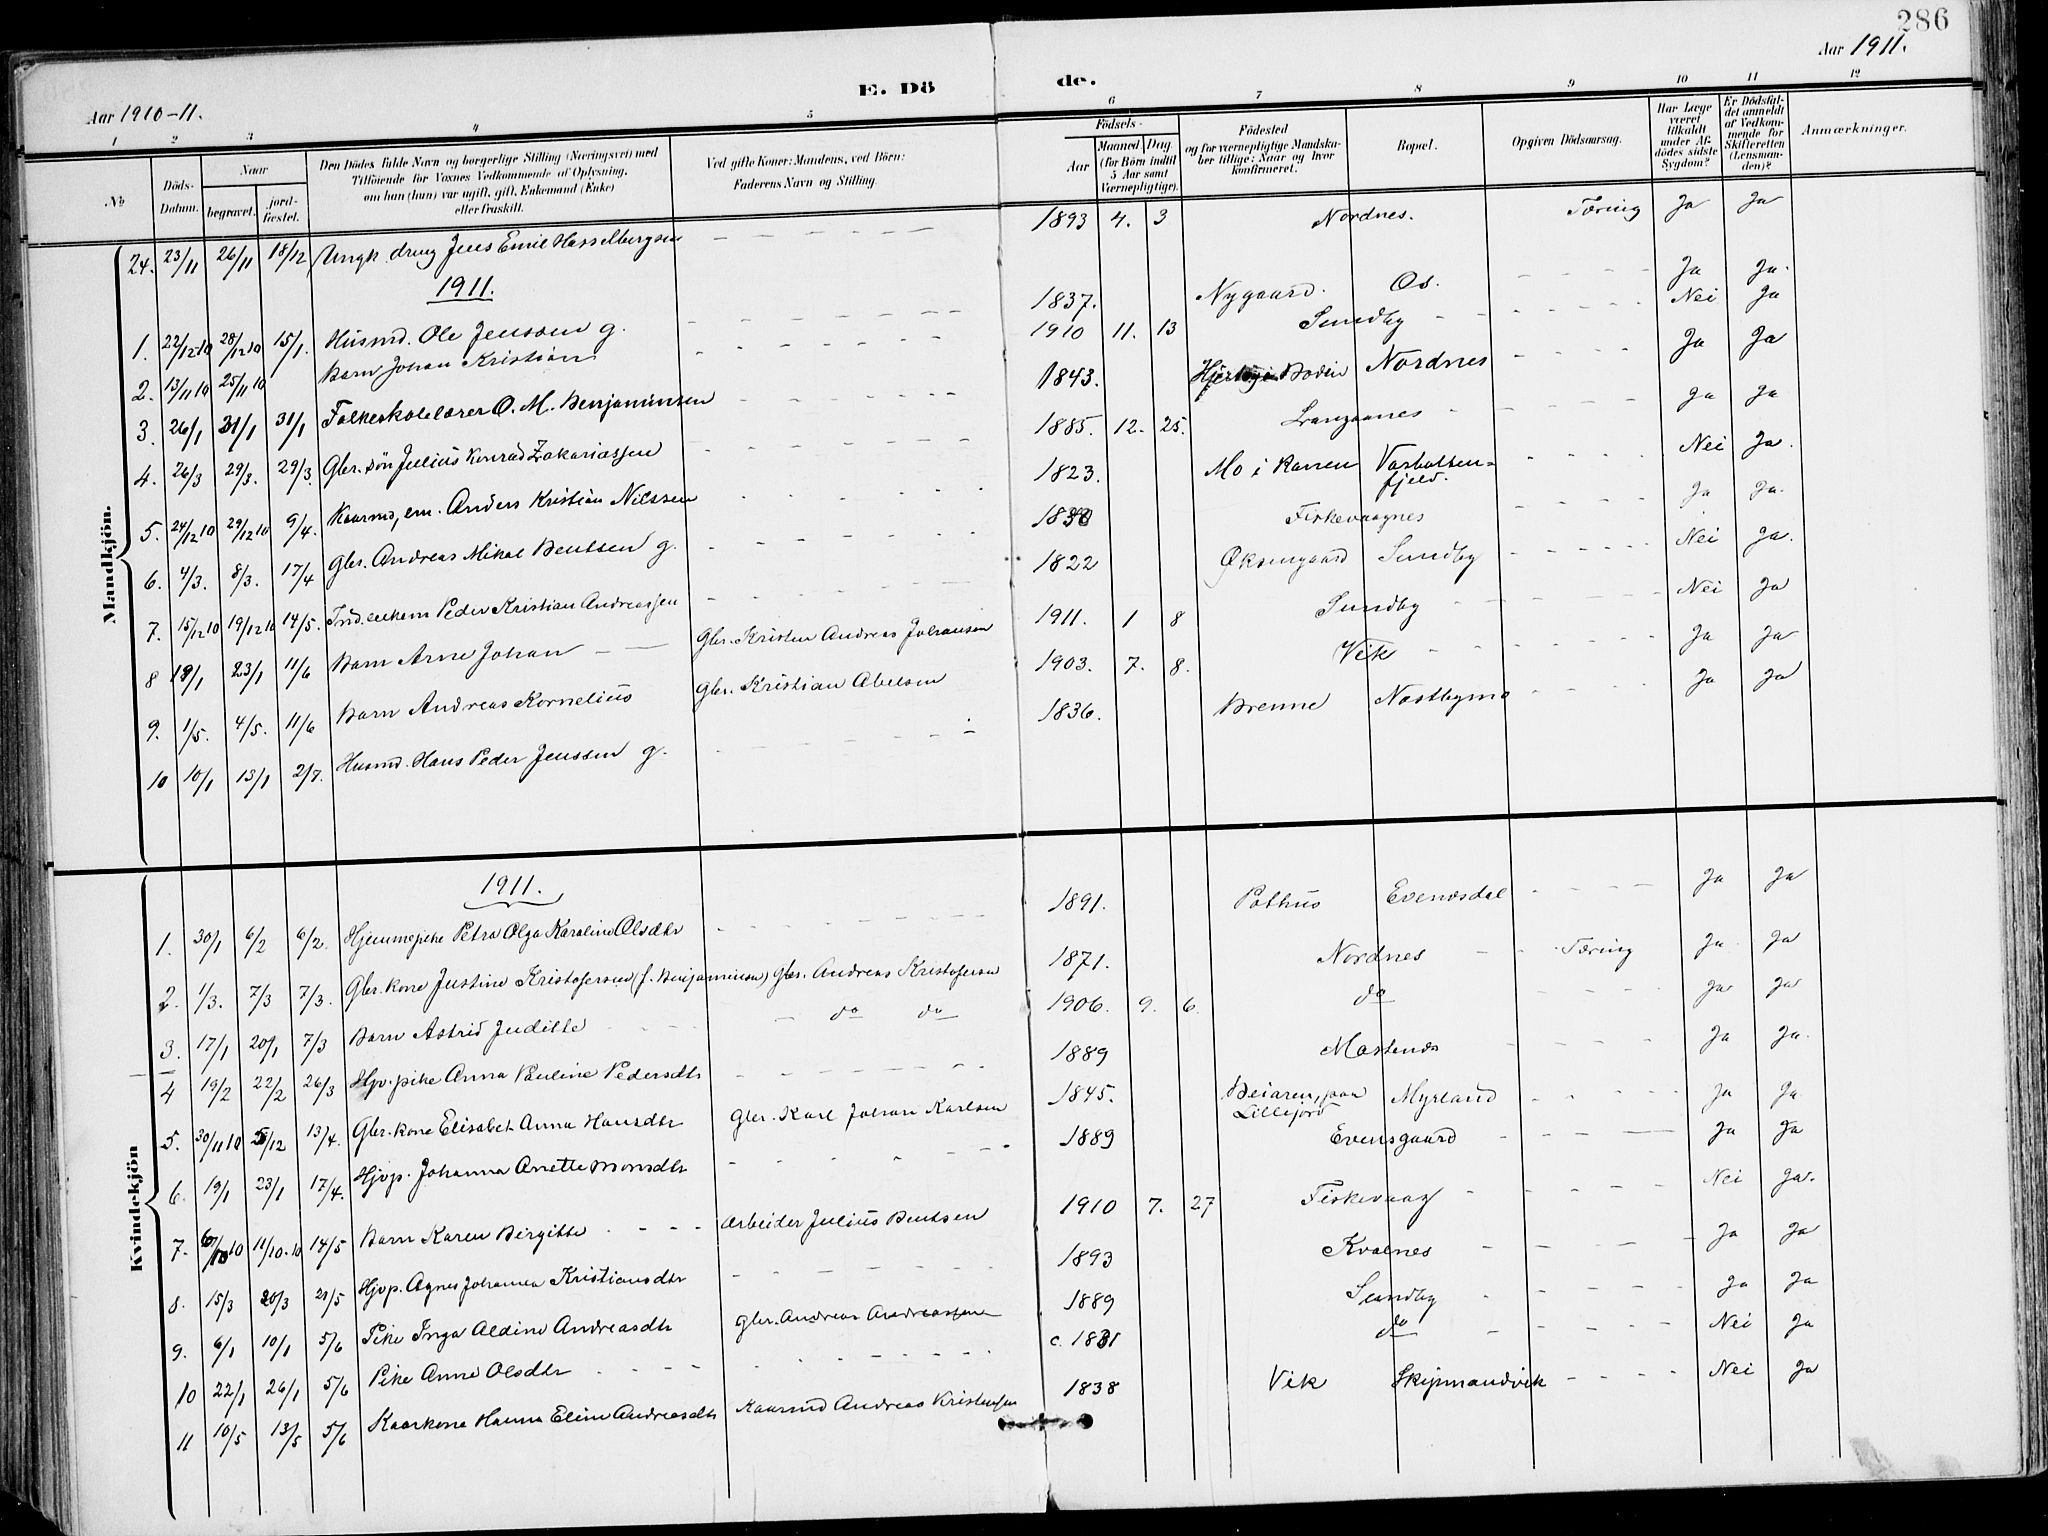 286
Aar 1910-11.
E. Dö
de.
Aar 1911.
1 2 3 4 5 6 7 8 9 10 11 12
No
Döds-Datum.
Naar
begravet.
jord-fæstet.
Den Dödes fulde Navn og borgerlige Stilling (Næringsvei) med
Tilföiende for Voxnes Vedkommende af Oplysning,
om han (hun) var ugift, gift, Enkemand (Enke)
eller fraskilt.
Ved gifte Koner: Mandens, ved Börn:
Faderens Navn og Stilling.
Födsels-
Aar
Maaned. Dag.
(for Börn indtil
5 Aar samt
Værnepligtige).
Födested
og for værnepligtige Mandska-
ber tillige: Naar og hvor
konfirmeret.
Bopæl.
Opgiven Dödsaarsag.
Har Læge
været
tilkaldt
under Af-
dödes sidste
Sygdom?
Er Dödsfal-
det anmeldt
af Vedkom-
mende for
Skifteretten
(Lensman-
den)?
Anmærkninger.
Mandkjön.
24. 23/11 26/11 18/12 Ungk. dreng Jens Emil Hasselbergsen - - - - - 1893 4. 3 Nordnes. Tæring Ja Ja
1911.
1. 22/12 10 28/12 10 15/1. Husmd. Ole Jenssen g. - - - - - 1837. Nygaard. Os. - - - - Ja Ja.
2. 13/11 10 25/11 10 Barn Johan Kristian - - - - - 1910 11. 13 Sundby - - - - Nei Ja
3. 26/1 31/1 31/1 Folkeskolelærer O. M. Benjaminsen - - - - - 1843. Bodin Nordnes - - - - Ja Ja
4. 26/3 29/3. 29/3. Gbr. sön Julius Konrad Zakariassen - - - - - 1885. 12. 25. Langaanes - - - - Ja Ja
5. 24/12 10 29/12 10 9/4. Kaarmd, em. Anders Kristian Nilssen - - - - - 1823. Mo i Ranen Vasbotten=
fjeld. - - - - Nei Ja.
6. 4/3. 8/3. 17/4 Gbr. Andreas Mikal Bentsen g. - - - - - Fiskevaagnes - - - - Ja Ja.
7. 15/12 10 19/12 10 14/5. Ind. enkem Peder Kristian Andreassen - - - - - 1822 Øksengaard Sundby - - - - Nei Ja.
8 18/1 23/1 11/6 Barn Arne Johan - - Gbr. Kristen Andreas Johansen 1911. 1 8 Sundby - - - - Nei Ja
9. 1/5. 4/5. 11/6 Barn Andreas Kornelius Gbr. Kristian Abelsen 1903. 7. 8. Vik - - - - Ja Ja
10 10/1 13/1 2/7. Husmd. Hans Peder Jenssen g. - - - - - 1836. Brenne Nestbymo - - - - Ja Ja
Kvindekjön
1911.
1. 30/1 6/2 6/2. Hjemmepike Petra Olga Karoline Olsdtr - - - - - 1891. Pothus Evenesdal - - - - Ja Ja
2. 1/3. 7/3 7/3. Gbr. kone Justine Kristofersen (f. Benjaminsen) Gbr. Andreas Kristofersen 1871. Nordnes - - Tæring Ja Ja
3. 17/1 20/1 7/3 Barn Astrid Juditte - - - - do do 1906. 9. 6. do - - - - Ja Ja
4 19/2 22/2 26/3 Hjv. pike Anna Pauline Pedersdtr - - - - - 1889 Mastenes - - - - Ja Ja.
5. 30/11 10 5/12 13/4. Gbr. kone Elisabet Anna Hansdtr Gbr. Karl Johan Karlsen 1845. Beiaren, paa
Lillefjord Myrland - - - - Ja Ja
6. 19/1 23/1 17/4. Hjvp. Johanna Anette Monsdtr - - - - - 1889 Evensgaard - - - - Ja Ja
7. 10 11/10-10 14/5 Barn Karen Birgitte - - - - Arbeider Julius Bentsen 1910 7. 27 Fiskevaag - - - - Nei Ja.
8. 15/3 20/3 21/5 Hjvp. Agnes Johanna Kristiansdtr - - - - - 1893 Kvalnes - - - - Ja Ja
9. 6/1 10/1 5/6 Pike Inga Aldine Andreasdtr Gbr. Andreas Andreassen 1889 Sundby - - - - Ja Ja
10 22/1 26/1 5/6 Pike Anne Olsdtr - - - - - c. 1831 do - - - - Nei Ja
11 10/5 13/5 5/6 Kaarkone Hanna Elen Andreasdtr Kaarmd Andreas Kristensen 1838 Vik Skjpmandvik - - - - Nei Ja